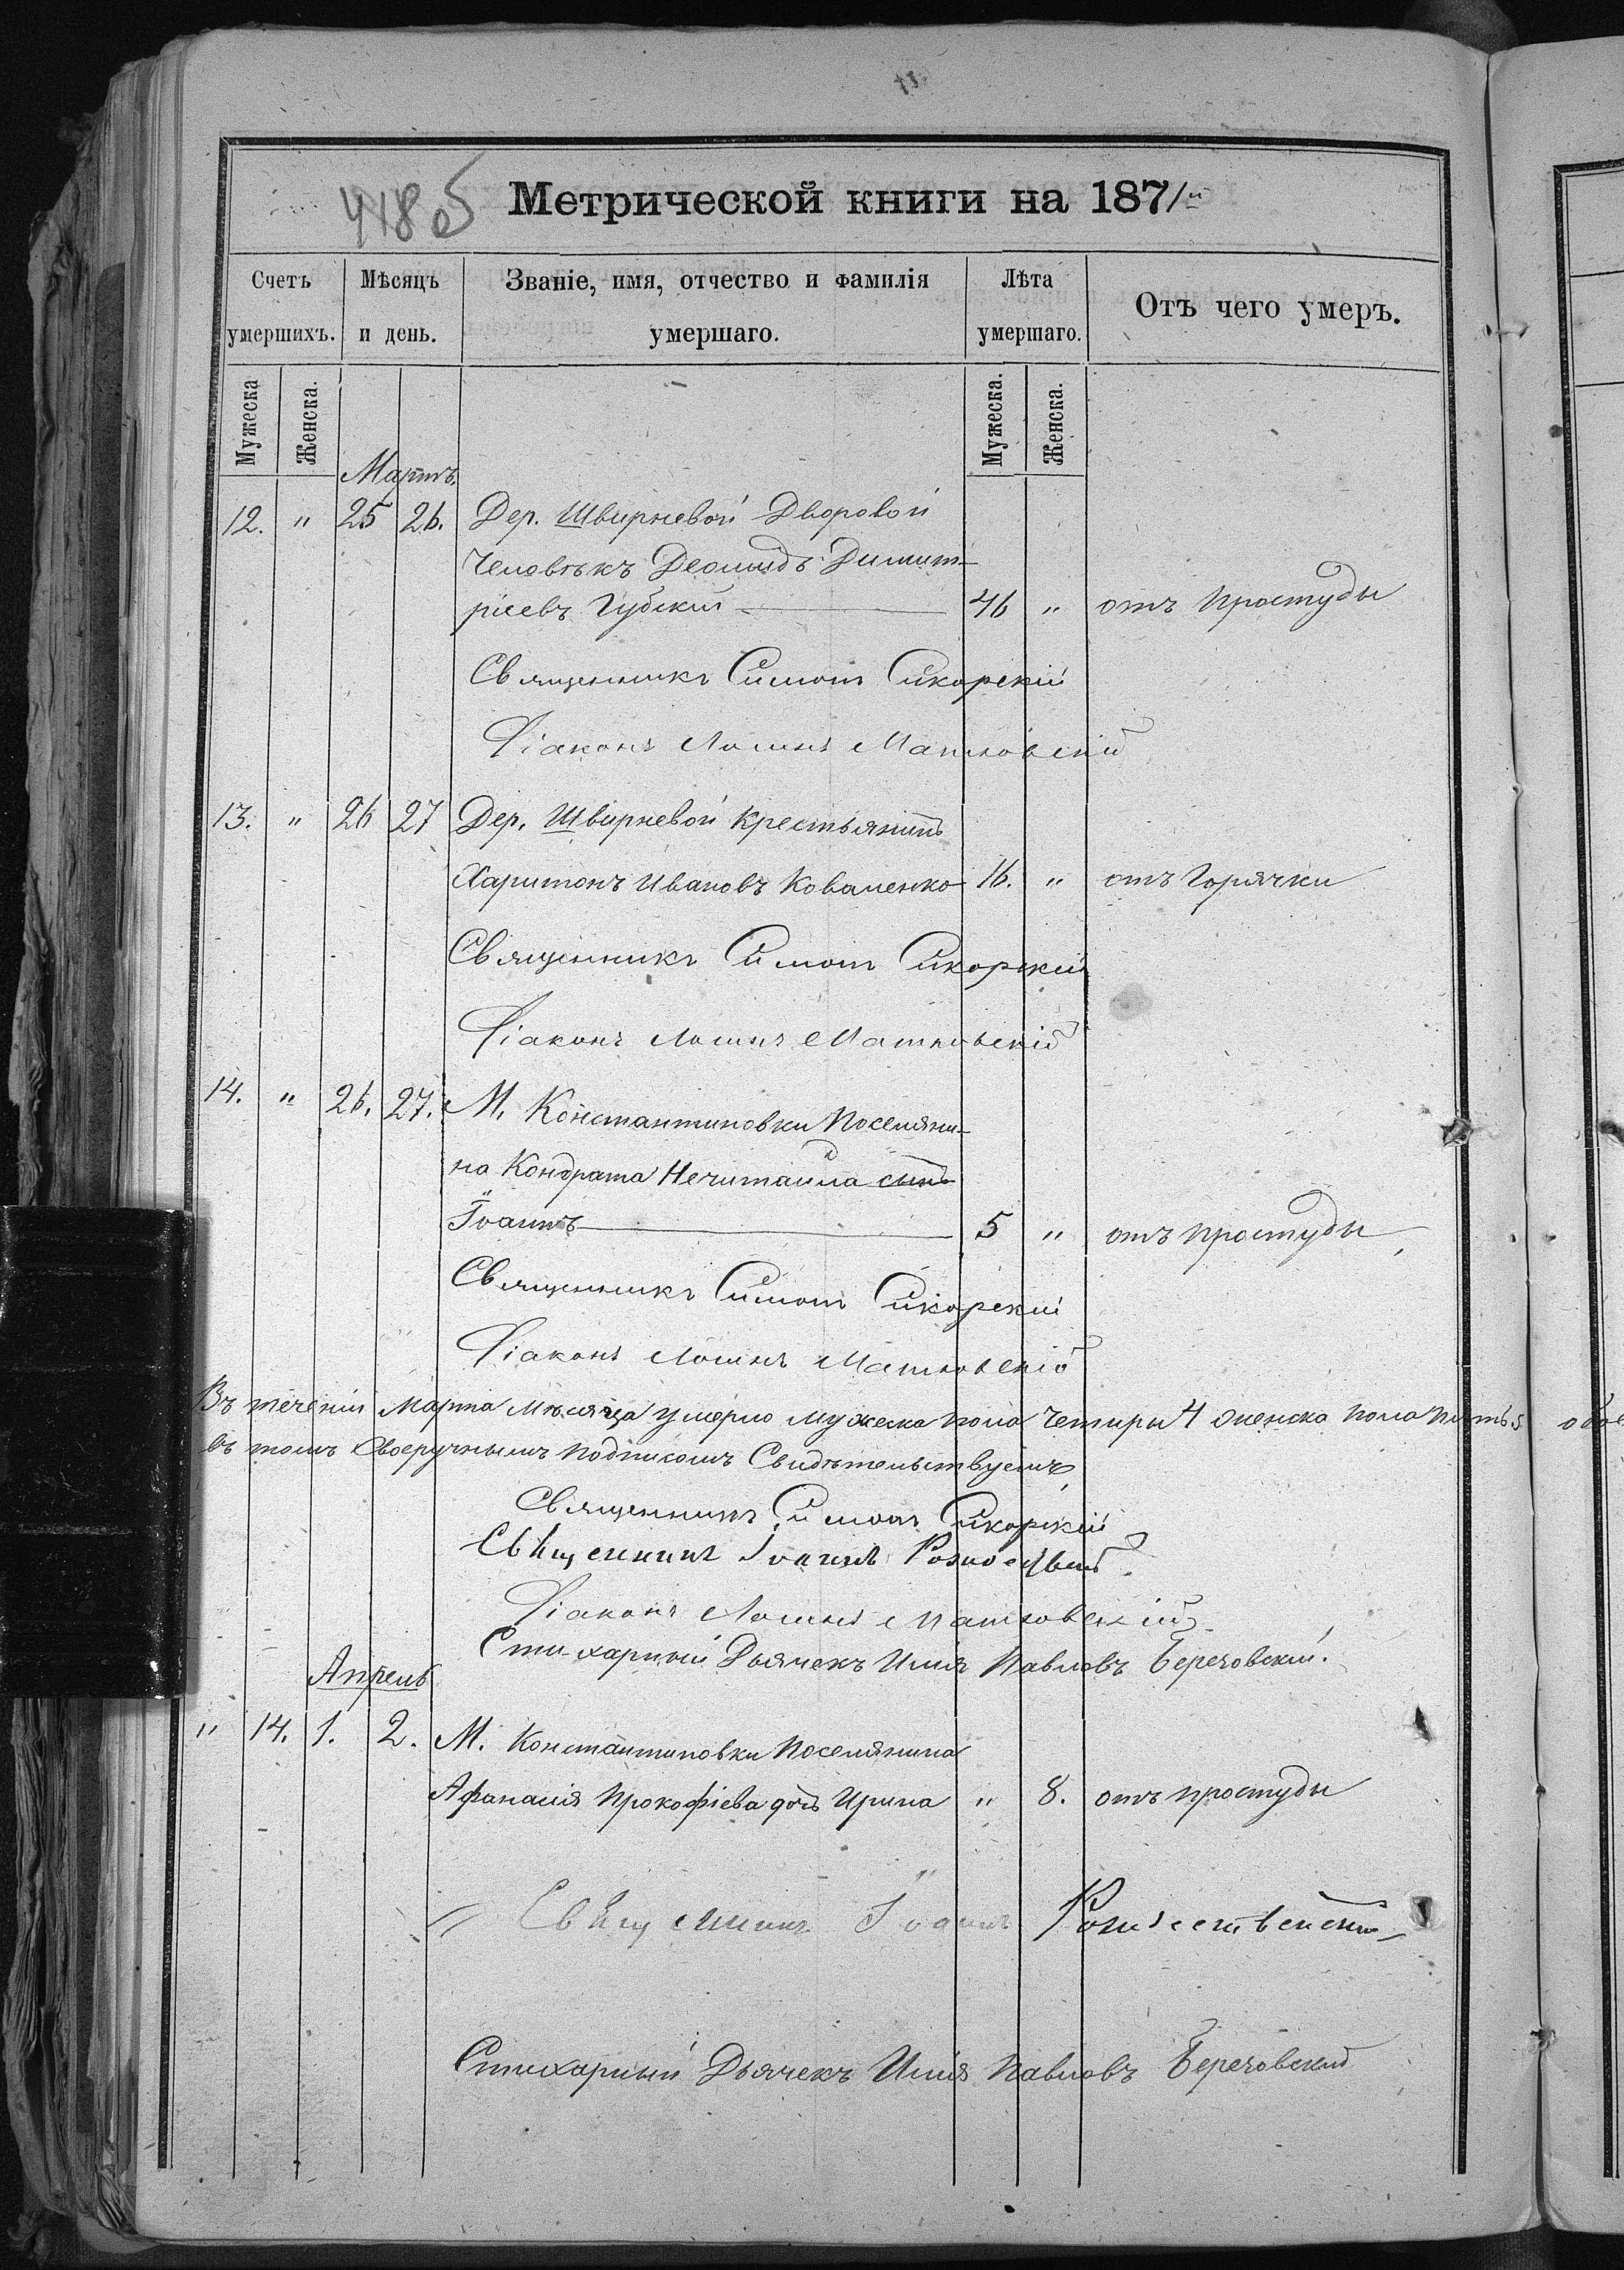 418 об
Метрической книги на 1871й
Счетъ умершихъ. Мѣсяцъ и день. Званіе, имя, отчество и фамилія умершаго. Лѣта умершаго. Отъ чего умеръ.
Мужеска Женска. Мужеска. Женска.
Мартъ.
12. " 25 26. Дер. Швирневой Дворовой
Человѣкъ Деомидъ Димит-
ріевъ Губскій 46 " отъ простуды
Священникъ Симонъ Сикорскій
Діаконъ Логинъ Матковскій
13. " 26 27 Дер. Швирневой Крестьянинъ
Харитонъ Ивановъ Коваленко 16. " отъ Горячки
Священникъ Симонъ Сикорскій
Діаконъ Логинъ Матковскій
14. " 26. 27. М. Константиновки Поселяни-
на Кондрата Нечитайла сынъ
Іоаннъ 5 " отъ простуды
Священникъ Симонъ Сикорскій
Діаконъ Логинъ Матковскій
Въ теченіи Марта Мѣсяца умерло мужеска пола четыри 4 женска пола пять 5
въ томъ Своеручнымъ подписомъ Свидѣтельствуемъ
Священникъ Симонъ Сикорскій
Священникъ Іоаннъ
Діаконъ Логинъ Матковскій
Стихарный Дьячекъ Илія Павловъ Березовскій.
Апрель
" 14. 1. 2. М. Константиновки Поселянина
Афанасія Прокофіева дочь Ирина " 8. отъ простуды
Священникъ Іоаннъ Рождественскій
Стихарный Дьячекъ Илія Павловъ Березовскій